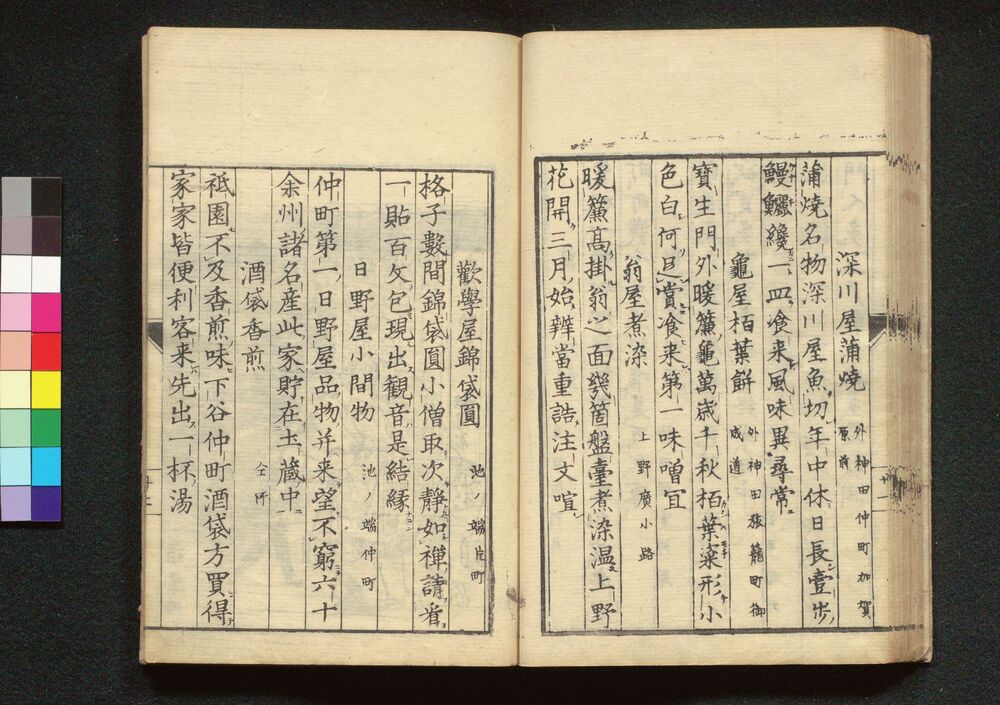 深川屋蒲焼 外神田仲町加賀原前
蒲焼名物深川屋魚切年中休日長壹步
鰻鱺纔一皿飡来風味異尋常
龜屋栢葉餅 外神田旅籠町御成道
寶生門外暖簾龜萬歳千秋栢葉粢形小
色白何足賞飡来第一味噌宜
翁屋煮染 上野廣小路
暖簾高掛翁之面幾箇盤臺煮染温上野
花開三月始辨當重詰注文喧
歡學屋錦袋圓 池ノ端片町
格子數間錦袋圓小僧取次静如禅請看
一貼百文包現出観音是結縁
日野屋小間物 池ノ端仲町
仲町第一日野屋品物并来望不窮六十
余州諸名産此家貯在土藏中
酒袋香煎 仝所
祇園不及香煎味下谷仲町酒袋方買得
家家皆便利客来先出一杯湯